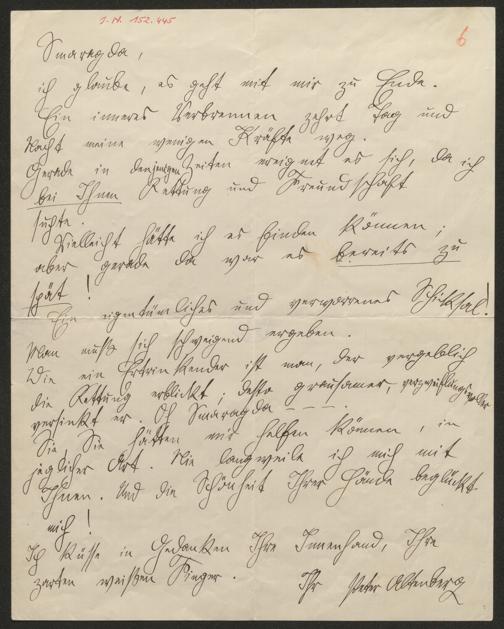 J.N. 152.445
6
Smaragda,
ich glaube, es geht mit mir zu Ende.
Ein inneres Verbrennen zehrt Tag und
Nacht meine wenigen Kräfte weg.
Gerade in denjenigen Zeiten ereignet es sich, da ich
bei Ihnen Rettung und Freundschaft
suchte.
Vielleicht hätte ich es finden können;
aber gerade da war es bereits zu
spät!
Ein eigentümliches und verworrenes Schicksal!
Man muß sich schweigend ergeben.
Wie ein Ertrinkender ist man, der vergeblich
die Rettung erblickt; desto grausamer, verzweiflungsvoller
versinkt er. Oh Smaragda ‒ ‒ ‒.
Sie, Sie hätten mir helfen können, in
jeglicher Art. Nie langweile ich mich mit
Ihnen. Und die Schönheit Ihrer Hände beglückt
mich!
Ich küsse in Gedanken Ihre Innenhand, Ihre
zarten weißen Finger.
Ihr Peter Altenberg